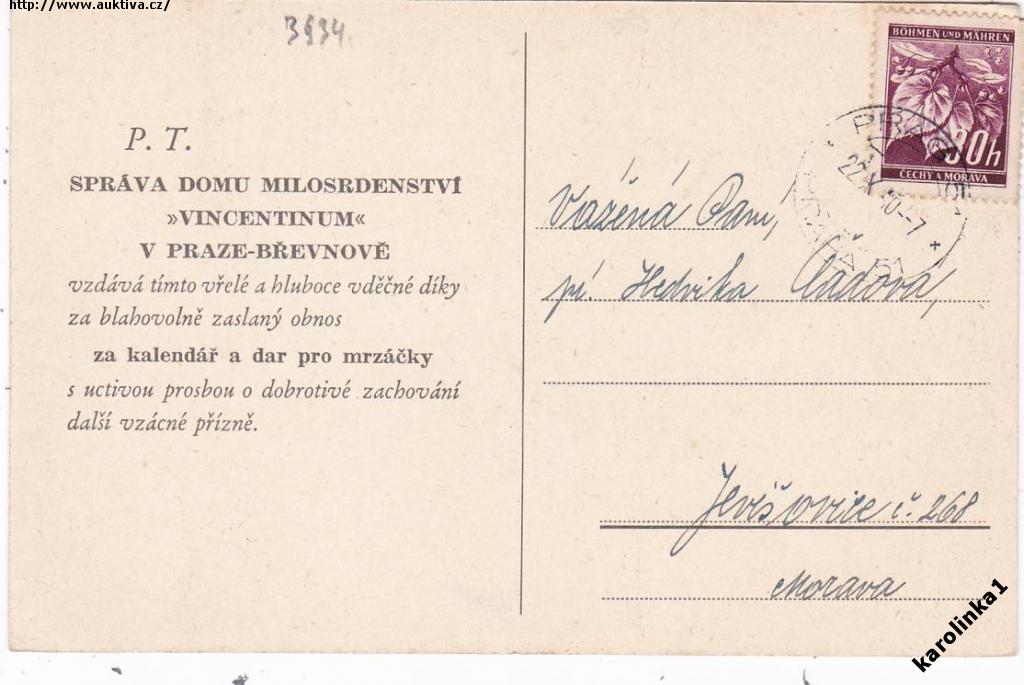 http://www.auktiva.cz/
3934
P. T.
SPRÁVA DOMU MILOSRDENSTVÍ
»VINCENTINUM«
V PRAZE-BŘEVNOVĚ
vzdává tímto vřelé a hluboce vděčné díky
za blahovolně zaslaný obnos
za kalendář a dar pro mrzáčky
s uctivou prosbou o dobrotivé zachování
další vzácné přízně.
BÖHMEN UND MÄHREN
30h
ČECHY A MORAVA
PRAG
22.X.40-7
Vážená Paní,
pí. Hedvika Čádová,
Jevišovice č. 268
Morava
karolinka1